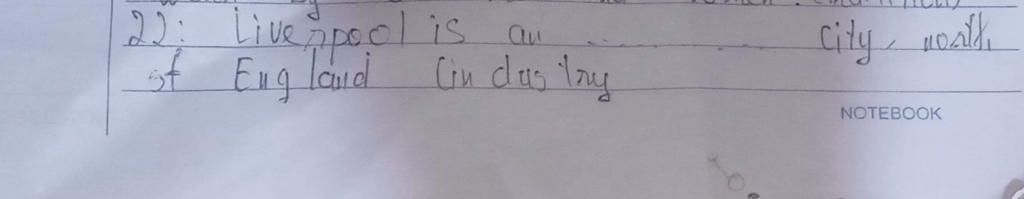 22: Liverpool is an ............ city, north
of England (industry
NOTEBOOK